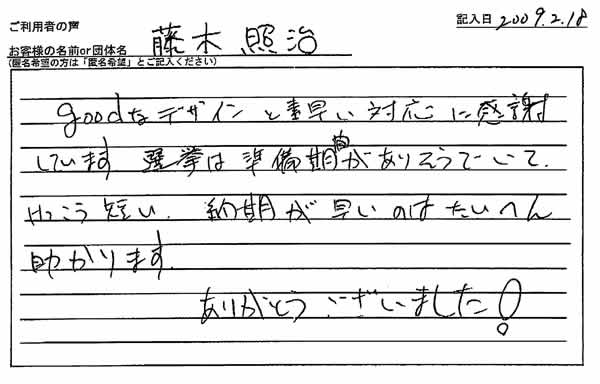 ご利用者の声
記入日 2009.2.18
お客様の名前or団体名 藤木照治
(匿名希望の方は「匿名希望」とご記入ください)
goodなデザインと素早い対応に感謝
しています。選挙は準備期間がありそうでいて、
けっこう短い。納期が早いのはたいへん
助かります。
ありがとうございました!